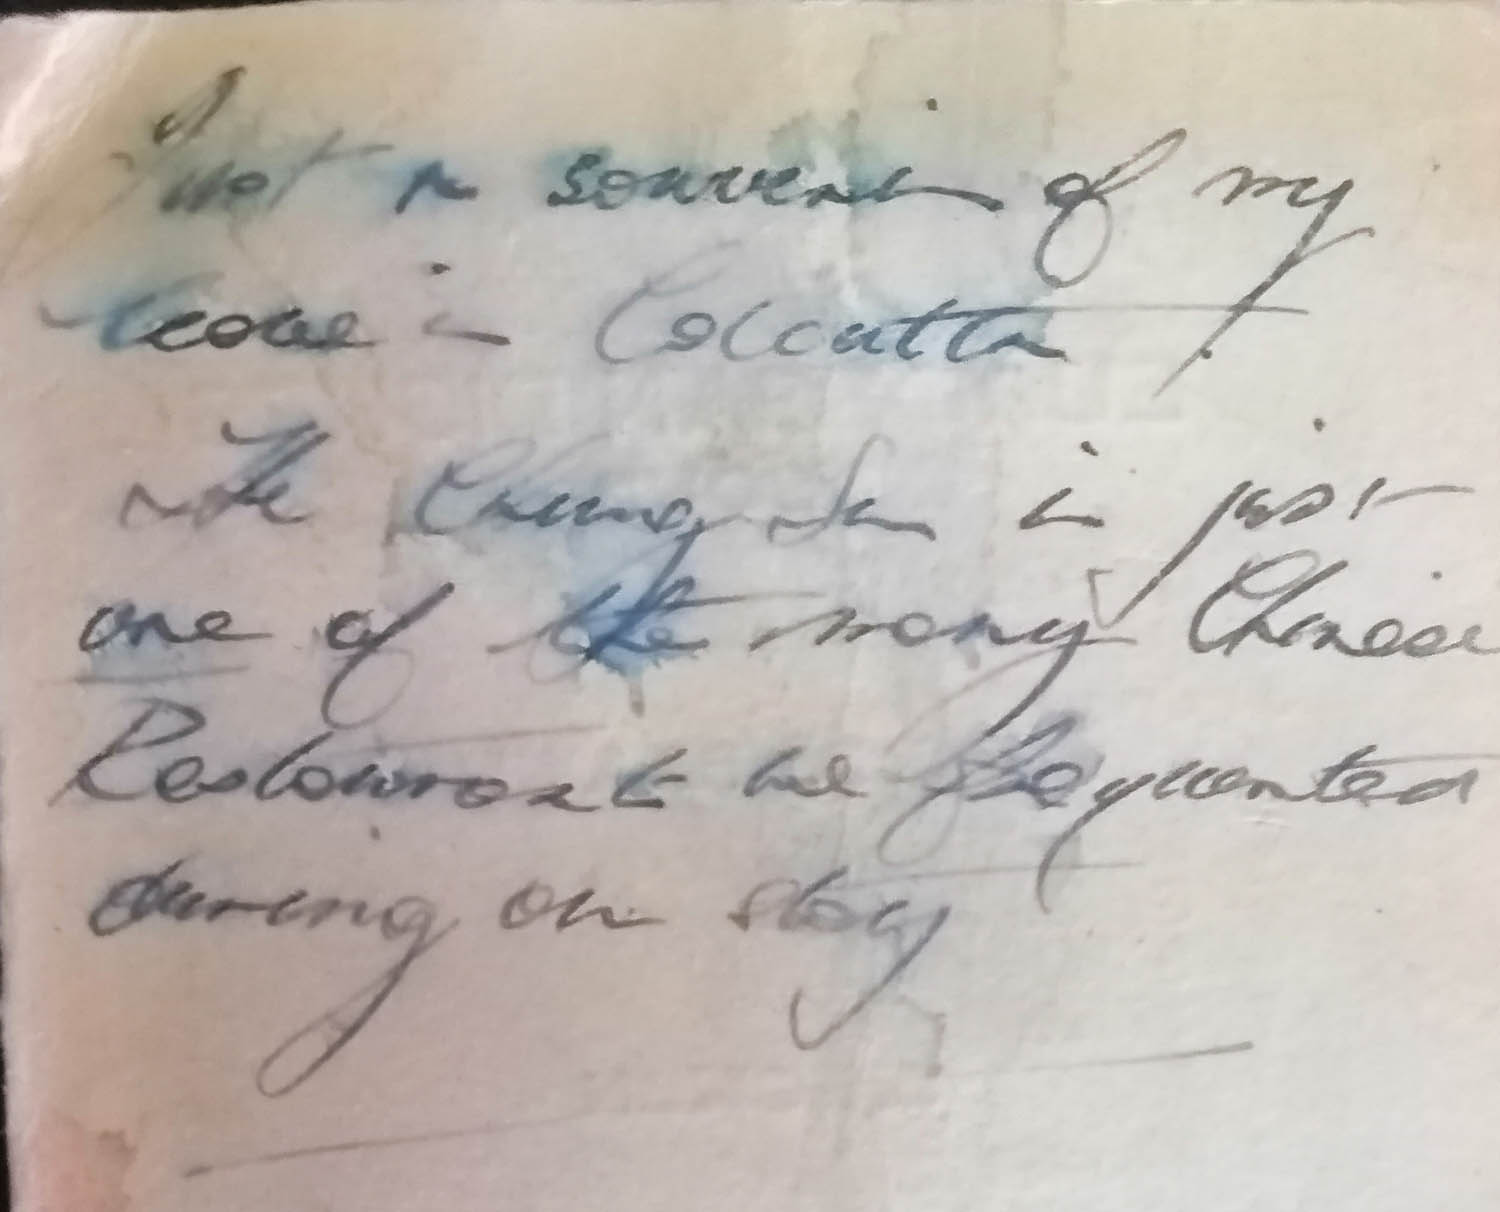 Just a souvenir of my
leave in Calcutta.
The Chung Wa is just
one of the many Chinese
Restaurants we frequented
during our stay